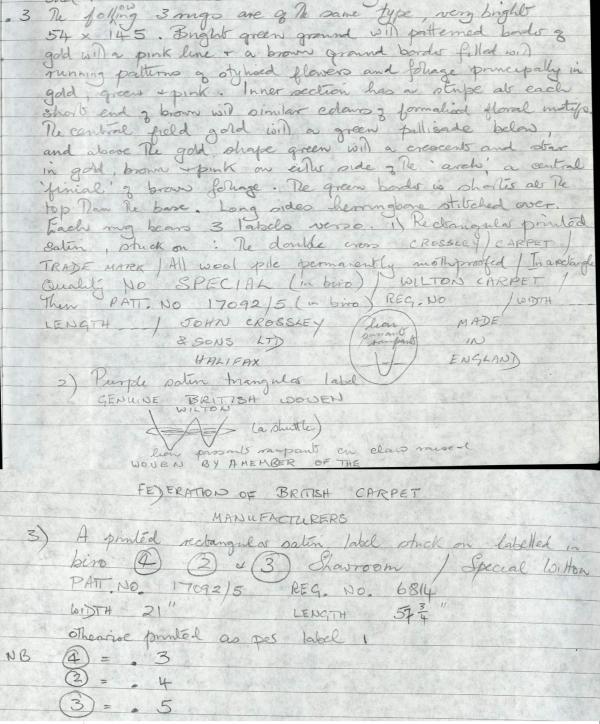 .3 The following 3 rugs are of the same type, very bright
54 x 145. Bright green ground with patterned border of
gold with a pink line & a brown ground border filled with
running patterns of stylised flowers and foliage principally in
gold, green & pink. Inner section has a stripe at each
short end of brown with similar colours of formalised floral motifs.
The central field gold with a green pallisade below,
and above the gold shape green with a crescents and star
in gold, brown & pink on either side of the 'arch', a central
'finial' of brown foliage. The green border is shorter at the
top than the base. Long sides herringbone stitched over.
Each rug bears 3 labels verso. 1) Rectangular printed
satin, stuck on : The double cross CROSSLEY / CARPET /
TRADE MARK / All wool pile permanently mothproofed / In a rectangle
Quality No SPECIAL (in biro) / WILTON CARPET /
Then PATT. NO 17092/5 (in biro) REG. NO / WIDTH
LENGTH / JOHN CROSSLEY
& SONS LTD
HALIFAX
lion
passant
rampant
MADE
IN
ENGLAND
2) Purple satin triangular label
GENUINE BRITISH WOVEN
WILTON
(a shuttle)
lion passants rampant on claw raised
WOVEN BY A MEMBER OF THE
FEDERATION OF BRITISH CARPET
MANUFACTURERS
3) A printed rectangular satin label stuck on labelled in
biro 4 2 & 3 Showroom / Special Wilton
PATT. NO. 17092/5 REG. NO. 6814
WIDTH 21" LENGTH 57 3/4"
otherwise printed as per label 1
NB 4 = .3
2 = .4
3 = .5